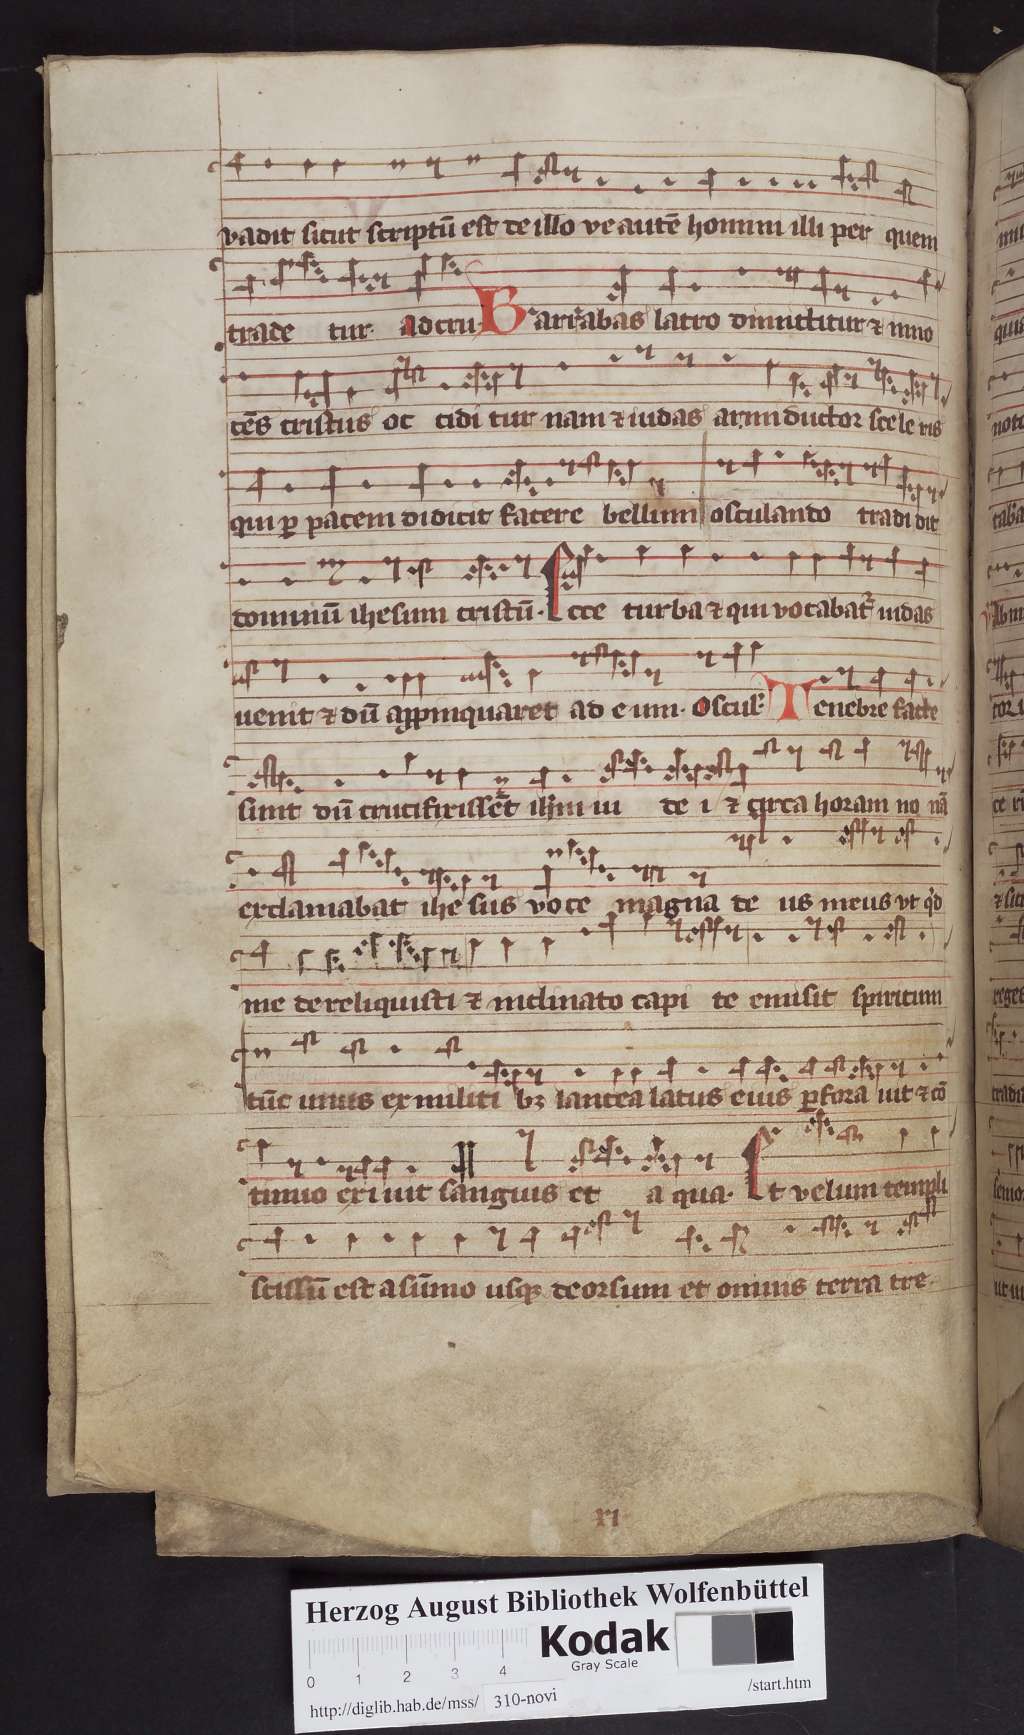 vadit sicut scriptū est de illo ve autē homini illi per quem
trade tur. ad cru. Barrabas latro dimittitur ⁊ inno
cēs cristus oc cidi tur nam ⁊ iudas armi ductor sce le ris
qui p pacem didicit facere bellum osculando tradi dit
dominū ihesum cristū. Ecce turba ⁊ qui vocabat iudas
uenit ⁊ dū appinquaret ad e um. Oscul Tenebre facte
sunt dū crucifixissēt ihm iu de i ⁊ circa horam no nā
exclamabat ihe sus vo ce magna de us meus vt qd
me dereliquisti ⁊ inclinato capi te emisit spiritum
tūc unus ex militi bꝫ lancea latus eius pfora uit ⁊ cō
tinuo exi uit sanguis et a qua. Et velum templi
scissū est a sūmo usqꝫ deorsum et omnis terra tre
xi
Herzog August Bibliothek Wolfenbüttel
Kodak
Gray Scale
0 1 2 3 4
http://diglib.hab.de/mss/ 310-novi /start.htm